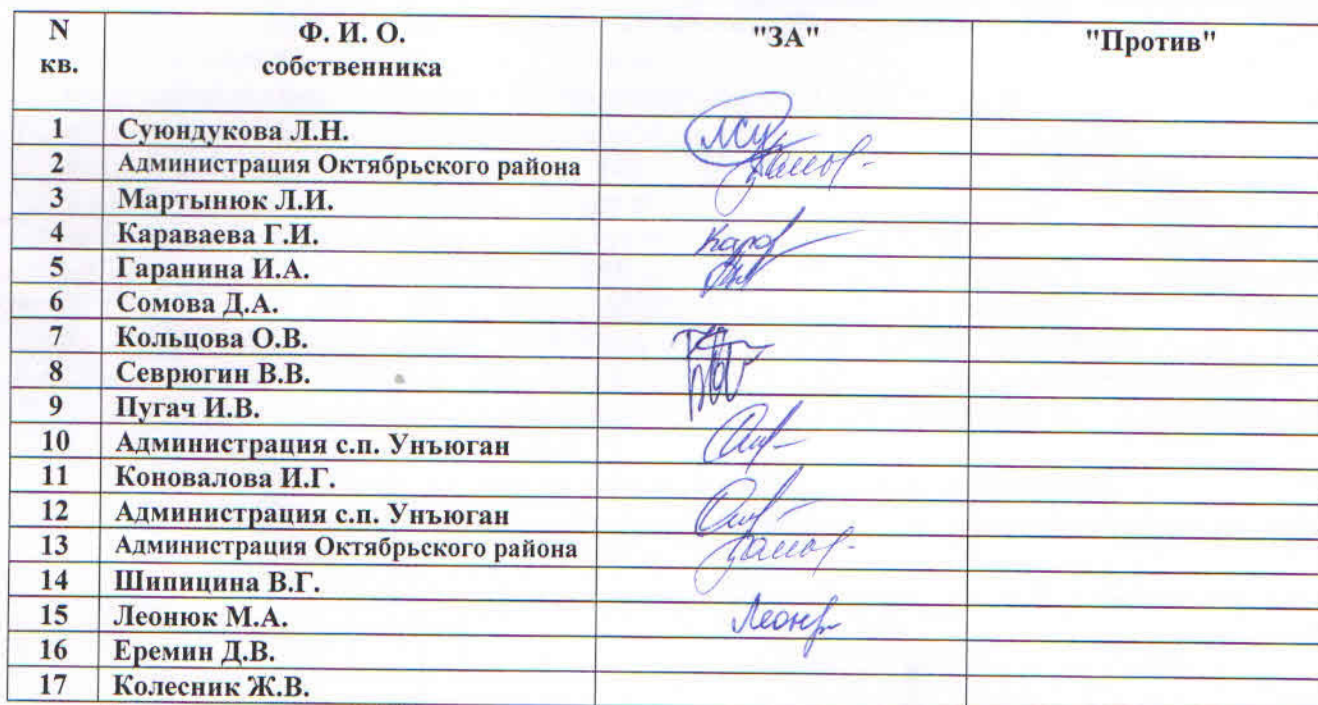 N кв. Ф. И. О. собственника "ЗА" "Против"
1 Суюндукова Л.Н.
2 Администрация Октябрьского района
3 Мартынюк Л.И.
4 Караваева Г.И.
5 Гаранина И.А.
6 Сомова Д.А.
7 Кольцова О.В.
8 Севрюгин В.В.
9 Пугач И.В.
10 Администрация с.п. Унъюган
11 Коновалова И.Г.
12 Администрация с.п. Унъюган
13 Администрация Октябрьского района
14 Шипицина В.Г.
15 Леонюк М.А.
16 Еремин Д.В.
17 Колесник Ж.В.